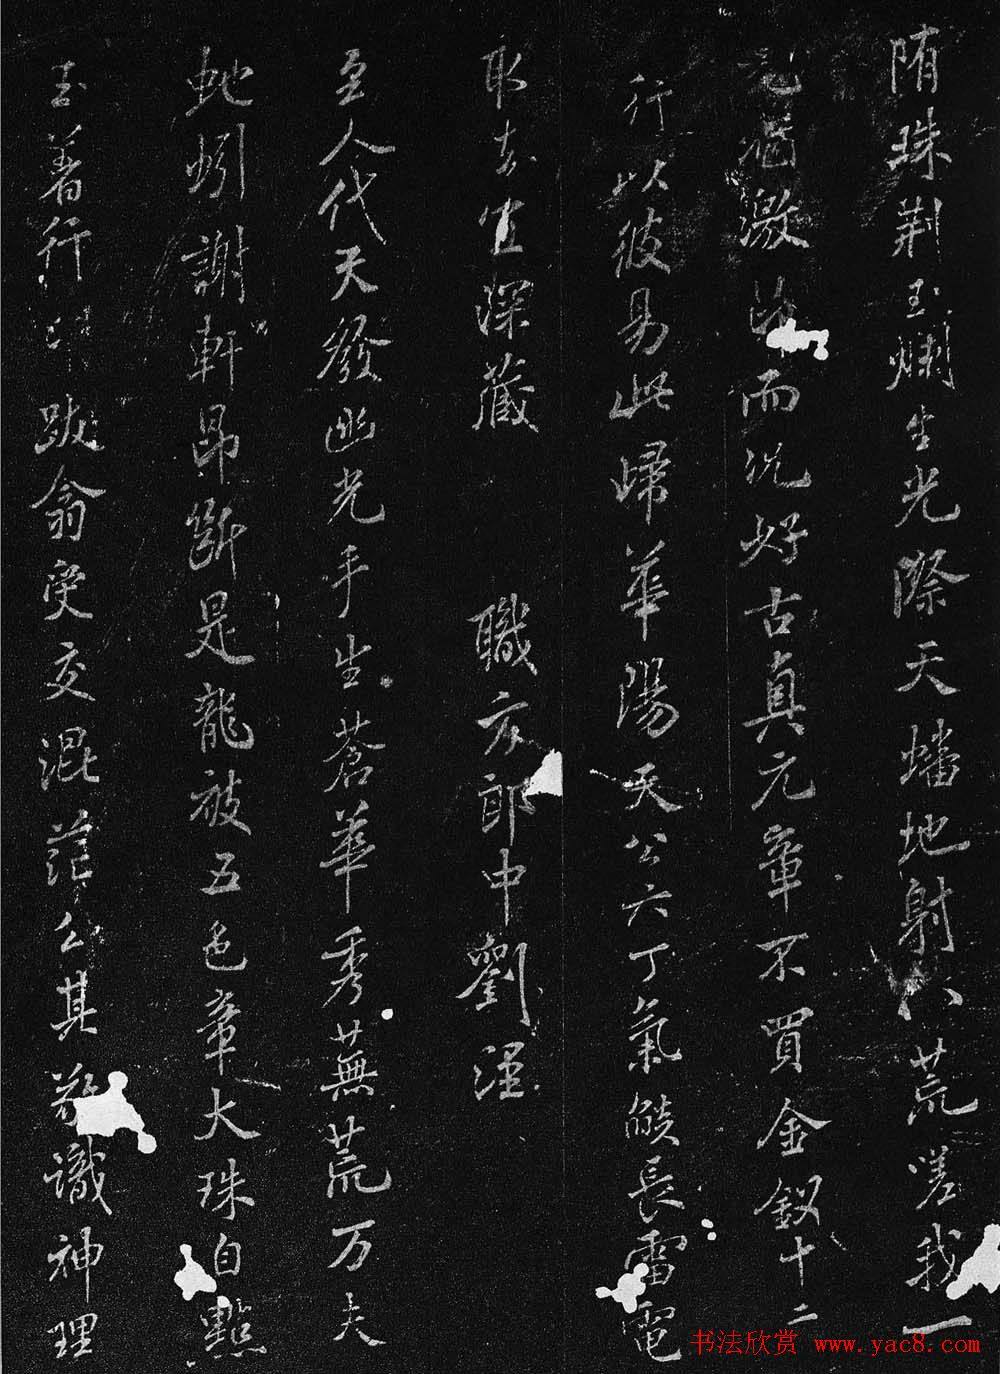 隋珠荆玉爛生光際天蟠地射八荒嗟我一
而況好古真元章不買金釵十二
行以彼易此歸華陽天公六丁氣燄長雷電
取去宜深藏 職方郎中劉涇
至人代天發幽光手生蒼華秀蕪荒万夫
蛇蚓謝軒昂斷是龍被五色章大珠自點
玄著行 跋翁受交混茫公其
識神理
书法欣赏 www.yac8.com